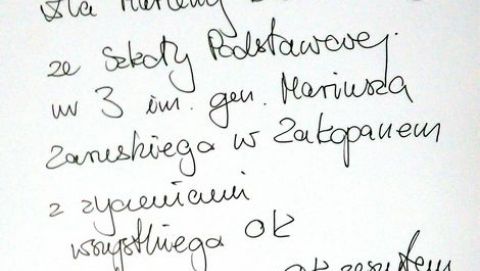 dla
ze Szkoły Podstawowej
nr 3 im. gen. Mariusza
Zaruskiego w Zakopanem
z życzeniami
wszystkiego ok